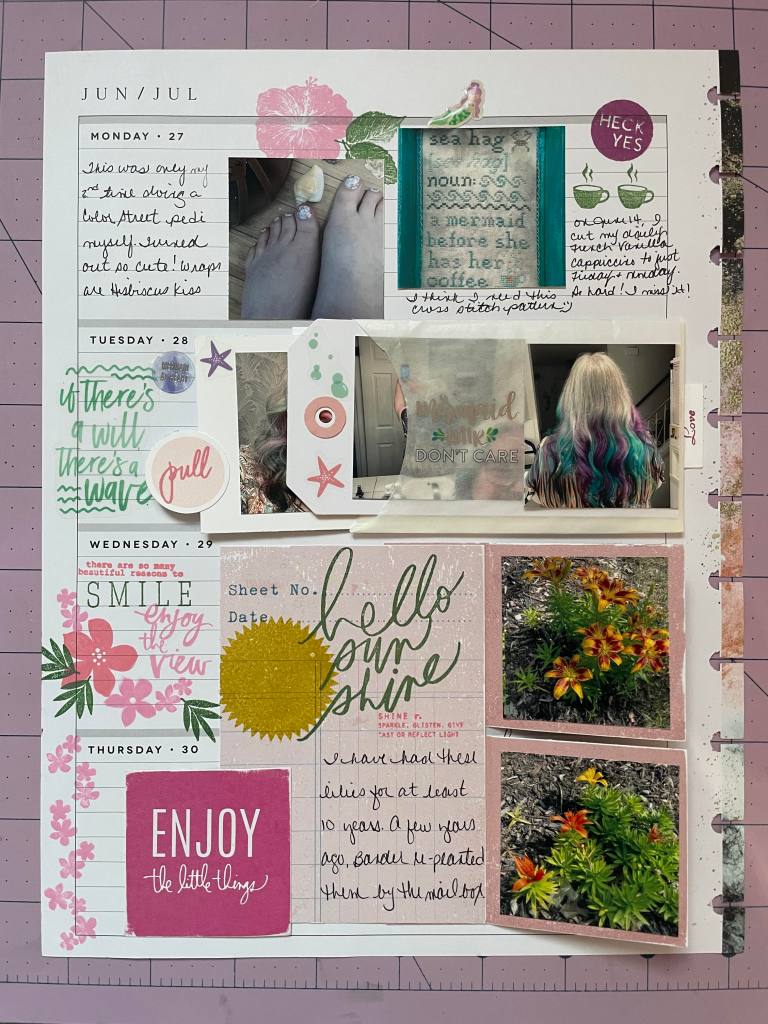 JUN/JUL
MONDAY • 27
This was only my
2nd time doing a
Color Street pedi
myself. Turned
out so cute! Wraps
are Hibiscus Kiss
sea hag
[see hag]
noun:
a mermaid
before she
has her
coffee
I think I need this
cross stitch pattern :)
HECK
YES
on June 14, I
cut my daily
French Vanilla
cappuccino to just
Friday + Monday.
So hard! I miss it!
TUESDAY • 28
if there's
a will
there's a
wave
MERMAID
AT HEART
pull
mermaid
hair
DON'T CARE
Love
WEDNESDAY • 29
there are so many
beautiful reasons to
SMILE
enjoy
the
view
Sheet No.
Date
hello
sun
shine
SHINE v.
SPARKLE, GLISTEN, GIVE
CAST OR REFLECT LIGHT
I have had these
lilies for at least
10 years. A few years
ago, re-planted
them by the mailbox
THURSDAY • 30
ENJOY
the little things